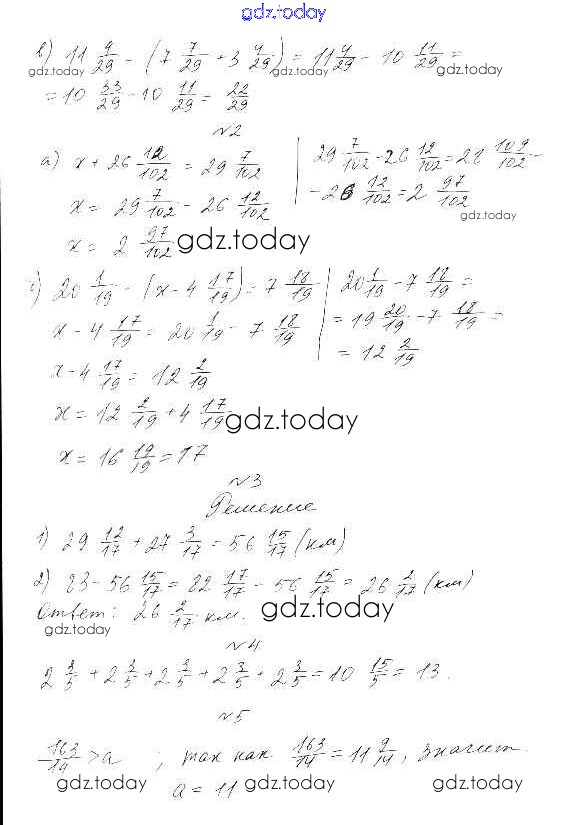 gdz.today
в) 11 4/29 - (7 7/29 + 3 4/29) = 11 4/29 - 10 11/29 =
gdz.today gdz.today gdz.today
= 10 33/29 - 10 11/29 = 22/29
№2
а) x + 26 12/102 = 29 7/102 | 29 7/102 - 26 12/102 = 28 109/102 -
x = 29 7/102 - 26 12/102 | - 26 12/102 = 2 97/102
gdz.today
x = 2 97/102 gdz.today
с) 20 1/19 - (x - 4 17/19) = 7 18/19 | 20 1/19 - 7 18/19 =
x - 4 17/19 = 20 1/19 - 7 18/19 | = 19 20/19 - 7 18/19 =
x - 4 17/19 = 12 2/19 | = 12 2/19
x = 12 2/19 + 4 17/19 gdz.today
x = 16 19/19 = 17
№3
Решение
1) 29 12/17 + 27 3/17 = 56 15/17 (км)
2) 83 - 56 15/17 = 82 17/17 - 56 15/17 = 26 2/17 (км)
Ответ: 26 2/17 км. gdz.today
gdz.today
№4
2 3/5 + 2 3/5 + 2 3/5 + 2 3/5 + 2 3/5 = 10 15/5 = 13.
№5
163/14 > a ; так как 163/14 = 11 9/14, значит
gdz.today a = 11 gdz.today gdz.today